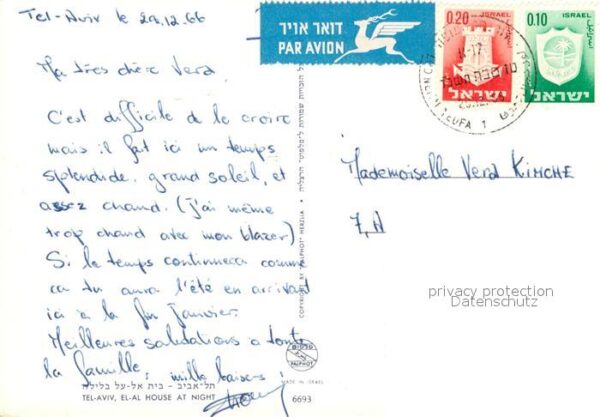 Tel-Aviv le 29.12.66
Ma très chère Vera,
C'est difficile de le croire
mais il fait ici un temps
splendide, grand soleil, et
assez chaud. (j'ai même
trop chaud avec mon blazer)
Si le temps continuera comme
ca tu aura l'été en arrivant
ici à la fin Janvier.
Meilleures salutations à toute
la famille, mille baisers
תל-אביב - בית אל-על בלילה
TEL-AVIV, EL-AL HOUSE AT NIGHT
6693
COPYRIGHT BY "PALPHOT" HERZLIA
PALPHOT
MADE IN ISRAEL
דואר אויר
PAR AVION
0.20 ISRAEL
ישראל
0.10 ISRAEL
ישראל
Mademoiselle Vera KIMCHE
7, A
privacy protection
Datenschutz